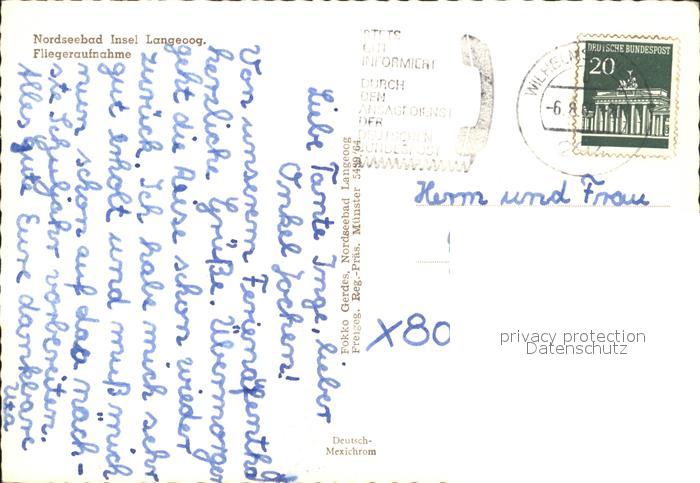 Nordseebad Insel Langeoog.
Fliegeraufnahme
Liebe Tante Inge, lieber
Onkel Jochen!
Von unserem Ferienaufenthalt
herzliche Grüße. Übermorgen
geht die Reise schon wieder
zurück. Ich habe mich sehr
gut erholt und muß mich
nun schon auf das näch-
ste Schuljahr vorbereiten.
Alles gute Eure dankbare
Uta
Fokko Gerdes, Nordseebad Langeoog
Freigeg. Reg.-Präs. Münster 5439/64
Deutsch-
Mexichrom
STETS
GUT
INFORMIERT
DURCH
DEN
ANSAGEDIENST
DER
DEUTSCHEN
BUNDESPOST
WILHELMS
-6.8.
DEUTSCHE BUNDESPOST
20
Herrn und Frau
x80
privacy protection
Datenschutz